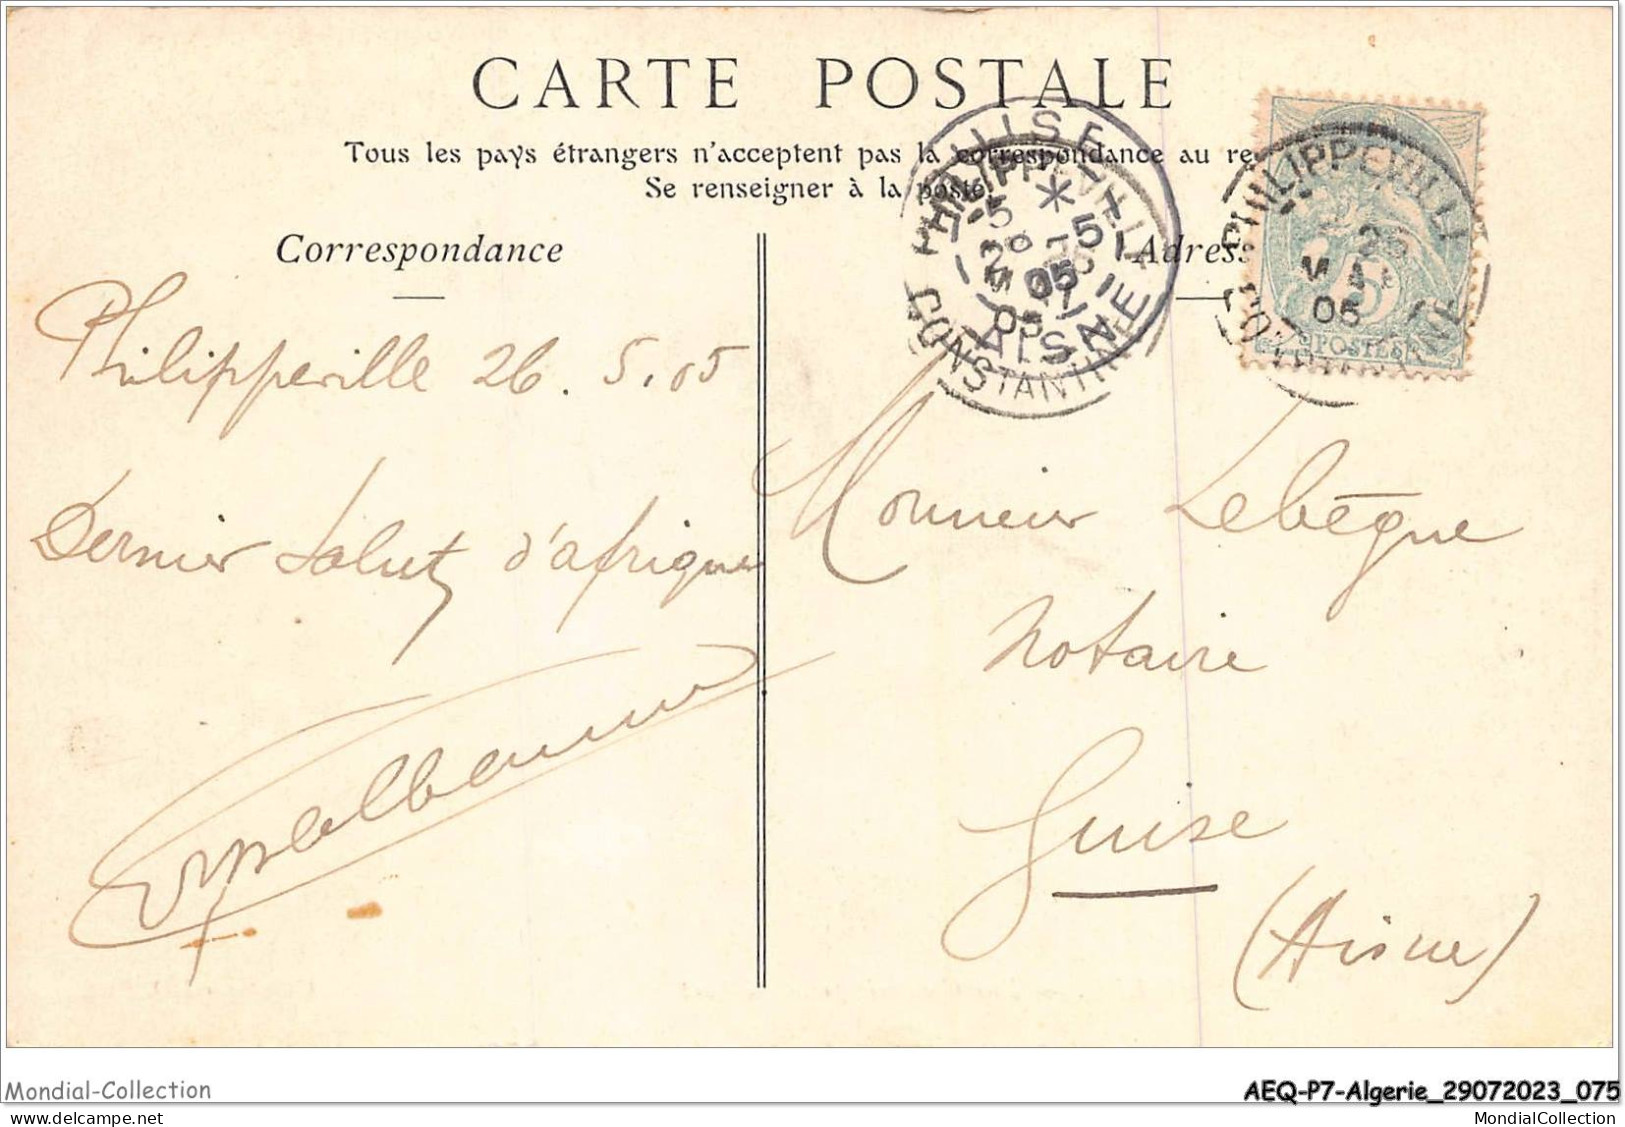 CARTE POSTALE
Tous les pays étrangers n'acceptent pas la correspondance au re
Se renseigner à la poste
Correspondance
Adress
PHILIPPEVILLE
CONSTANTINE
05
GUISE
AISNE
5
05
PHILIPPEVILLE
26
MAI
05
5
POSTES
Philippeville 26.5.05
Dernier Salut d'afrique
Monsieur Lebègue
Notaire
Guise
(Aisne)
Mondial-Collection
AEQ-P7-Algerie_29072023_075
MondialCollection